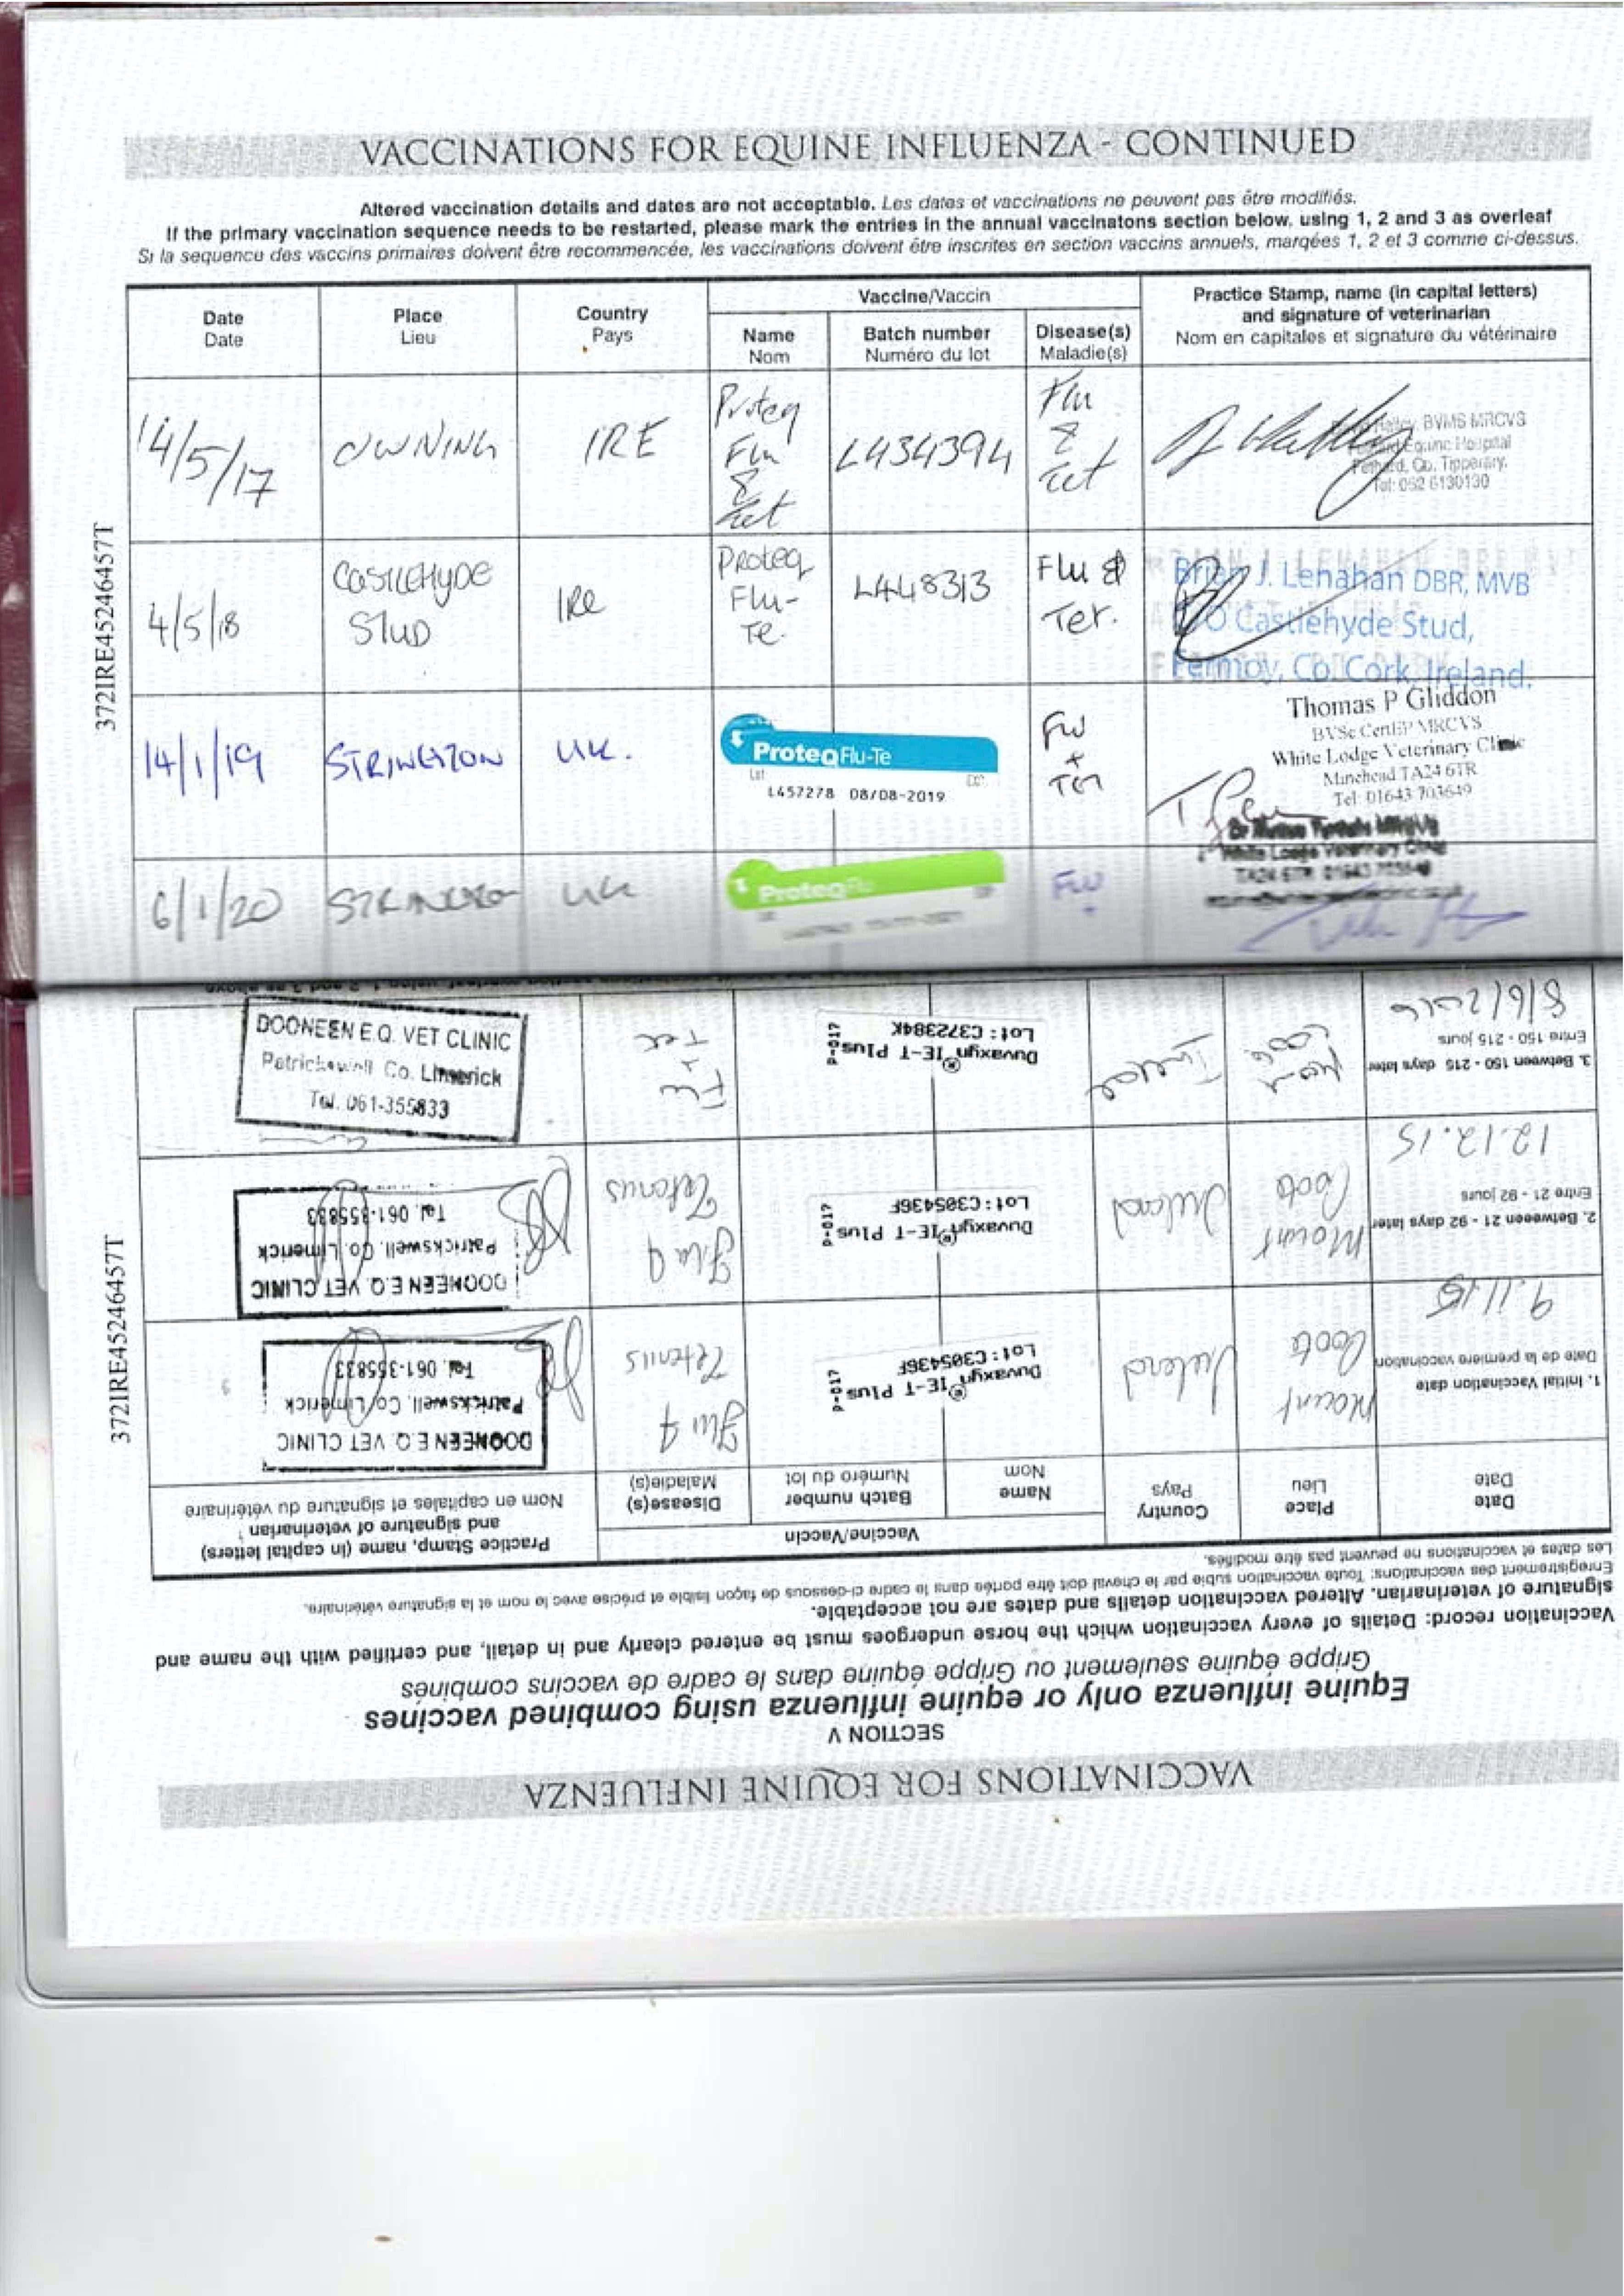 VACCINATIONS FOR EQUINE INFLUENZA - CONTINUED
Altered vaccination details and dates are not acceptable. Les dates et vaccinations ne peuvent pas être modifiés.
If the primary vaccination sequence needs to be restarted, please mark the entries in the annual vaccinatons section below, using 1, 2 and 3 as overleaf
Si la sequence des vaccins primaires doivent être recommencée, les vaccinations doivent être inscrites en section vaccins annuels, marqées 1, 2 et 3 comme ci-dessus.
372IRE45246457T
Date
Date
Place
Lieu
Country
Pays
Vaccine/Vaccin
Name
Nom
Batch number
Numéro du lot
Disease(s)
Maladie(s)
Practice Stamp, name (in capital letters)
and signature of veterinarian
Nom en capitales et signature du vétérinaire
14/5/17
OWNING
IRE
Proteq
Flu
&
Tet
L434394
Flu
&
Tet
BVMS MRCVS
Equine Hospital
Co. Tipperary.
Tel: 052 6130130
4/5/18
CASTLEHYDE
STUD
IRe
Proteq
Flu-
Te.
L448313
Flu &
Tet.
Brian J. Lenahan DBR, MVB
Castlehyde Stud,
Fermoy, Co. Cork, Ireland.
14/1/19
STRINGSTON
UK.
ProteqFlu-Te
Lot
L457278 08/08-2019
Flu
+
Tet
Thomas P Gliddon
BVSc CertEP MRCVS
White Lodge Veterinary Clinic
Minehead TA24 6TR
Tel: 01643 703649
6/1/20
UK
ProteqFlu
Flu
White Lodge Veterinary Clinic
TA24 6TR 01643 703649
VACCINATIONS FOR EQUINE INFLUENZA
SECTION V
Equine influenza only or equine influenza using combined vaccines
Grippe équine seulement ou Grippe équine dans le cadre de vaccins combinés
Vaccination record: Details of every vaccination which the horse undergoes must be entered clearly and in detail, and certified with the name and
signature of veterinarian. Altered vaccination details and dates are not acceptable.
Enregistrement des vaccinations: Toute vaccination subie par le cheval doit être portée dans le cadre ci-dessous de façon lisible et précise avec le nom et la signature vétérinaire.
Les dates et vaccinations ne peuvent pas être modifiés.
372IRE45246457T
Date
Date
Place
Lieu
Country
Pays
Vaccine/Vaccin
Name
Nom
Batch number
Numéro du lot
Disease(s)
Maladie(s)
Practice Stamp, name (in capital letters)
and signature of veterinarian
Nom en capitales et signature du vétérinaire
1. Initial Vaccination date
Date de la première vaccination
9.11.15
Mount
Coote
Ireland
Duvaxyn® IE-T Plus
Lot: C305436F
P-017
Flu &
Tetanus
DOONEEN E.Q. VET CLINIC
Patrickswell, Co. Limerick
Tel. 061-355833
2. Betweeen 21 - 92 days later
Entre 21 - 92 jours
12.12.15
Mount
Coote
Ireland
Duvaxyn® IE-T Plus
Lot: C305436F
P-017
Flu &
Tetanus
DOONEEN E.Q. VET CLINIC
Patrickswell, Co. Limerick
Tel. 061-355833
3. Between 150 - 215 days later
Entre 150 - 215 jours
8/6/2016
Ireland
Duvaxyn® IE-T Plus
Lot: C372384K
P-017
DOONEEN E.Q. VET CLINIC
Patrickswell Co. Limerick
Tel. 061-355833